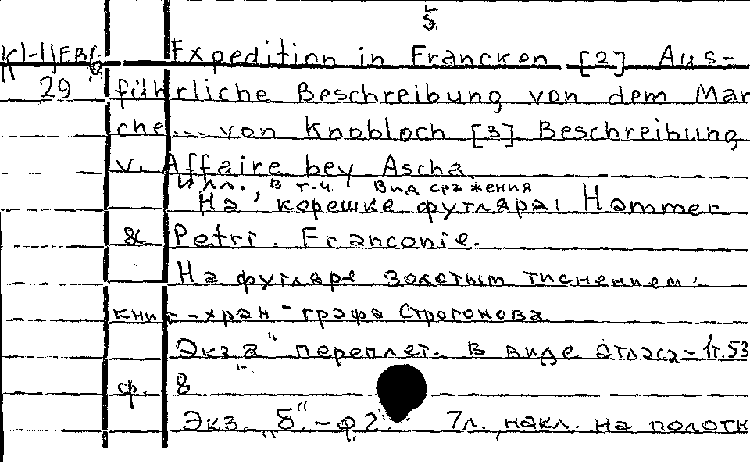 5.
К1-1/ЕВ6 Expedition in Francken [2] Aus-
29 führliche Beschreibung von dem Mar
che... von Knobloch [3] Beschreibung
v. Affaire bey Ascha
Илл. в т.ч. Вид сражения
На корешке футляра: Hammer
& Petri. Franconie.
На футляре золотым тиснением:
книг-хран-графа Строгонова
Экз. "а" переплет. в виде атласа-1т.53
ф. 8
Экз. "б"-ф2. 7л. накл. на полотн